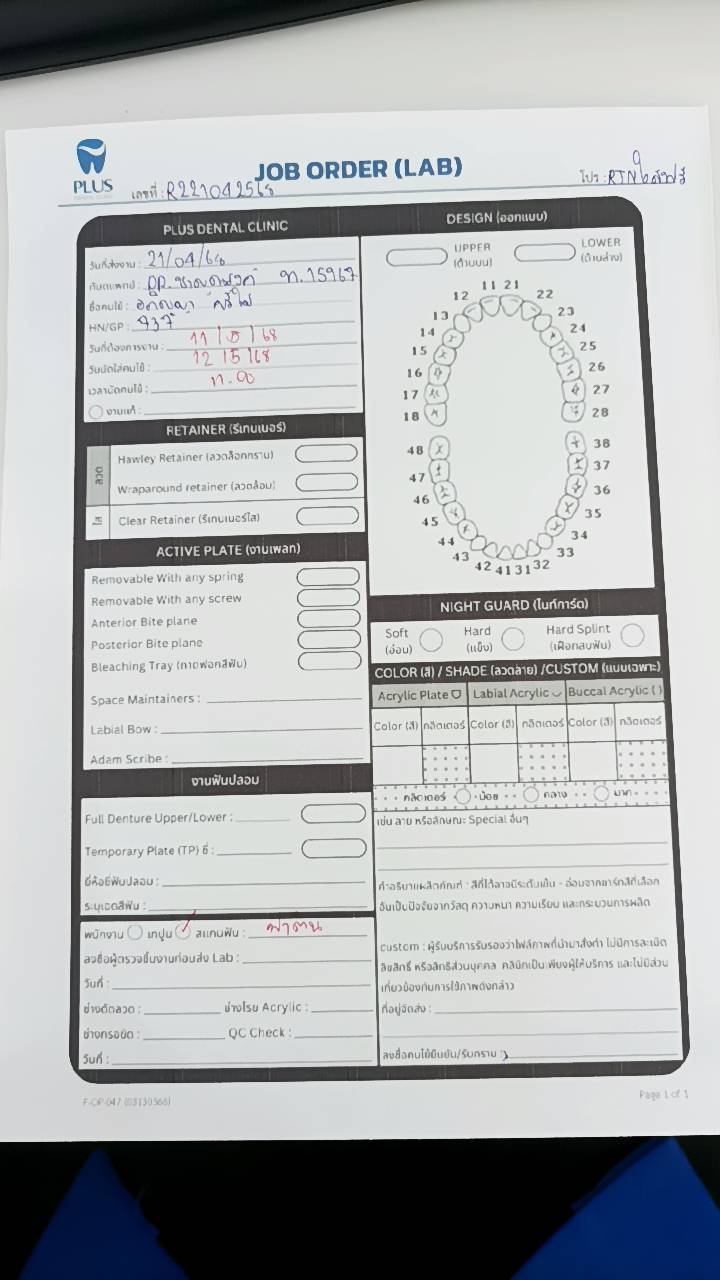 PLUS
DENTAL CLINIC
JOB ORDER (LAB)
เลขที่ : R221042568
โปร : RTN
PLUS DENTAL CLINIC
วันที่ส่งงาน : 21/04/68
ทันตแพทย์ : DR. ท.15967
ชื่อคนไข้ :
HN/GP : 937
วันที่ต้องการงาน : 11 / 5 / 68
วันนัดใส่คนไข้ : 12 / 5 / 68
เวลานัดคนไข้ :
งานแก้ :
RETAINER (รีเทนเนอร์)
ลวด
Hawley Retainer (ลวดล็อกกราม)
Wraparound retainer (ลวดล้อม)
ใส
Clear Retainer (รีเทนเนอร์ใส)
ACTIVE PLATE (งานเพลท)
Removable With any spring
Removable With any screw
Anterior Bite plane
Posterior Bite plane
Bleaching Tray (ถาดฟอกสีฟัน)
Space Maintainers :
Labial Bow :
Adam Scribe :
งานฟันปลอม
Full Denture Upper/Lower :
Temporary Plate (TP) ซี่ :
ยี่ห้อซี่ฟันปลอม :
ระบุเฉดสีฟัน :
พนักงาน เทปูน สแกนฟัน : ฟาตีน
ลงชื่อผู้ตรวจชิ้นงานก่อนส่ง Lab :
วันที่ :
ช่างดัดลวด : ช่างโรย Acrylic :
ช่างกรอขัด : QC Check :
วันที่ :
DESIGN (ออกแบบ)
UPPER (ด้านบน)
LOWER (ด้านล่าง)
11 21
12 22
13 23
14 24
15 25
16 26
17 27
18 28
48 38
47 37
46 36
45 35
44 34
43 33
42 41 31 32
NIGHT GUARD (ไนท์การ์ด)
Soft (อ่อน)
Hard (แข็ง)
Hard Splint (เฝือกสบฟัน)
COLOR (สี) / SHADE (ลวดลาย) /CUSTOM (แบบเฉพาะ)
Acrylic Plate Labial Acrylic Buccal Acrylic ( )
Color (สี) กลิตเตอร์ Color (สี) กลิตเตอร์ Color (สี) กลิตเตอร์
กลิตเตอร์ น้อย กลาง มาก
เช่น ลาย หรือลักษณะ Special อื่นๆ
คำอธิบายผลิตภัณฑ์ : สีที่ได้อาจมีระดับเข้ม - อ่อนจากชาร์ทสีที่เลือก
อันเป็นปัจจัยจากวัสดุ ความหนา ความเรียบ และกระบวนการผลิต
custom : ผู้รับบริการรับรองว่าไฟล์ภาพที่นำมาสั่งทำ ไม่มีการละเมิด
ลิขสิทธิ์ หรือสิทธิส่วนบุคคล คลินิกเป็นเพียงผู้ให้บริการ และไม่มีส่วน
เกี่ยวข้องกับการใช้ภาพดังกล่าว
ที่อยู่จัดส่ง :
ลงชื่อคนไข้ยืนยัน/รับทราบ :
F-OP-047 (03130568)
Page 1 of 1